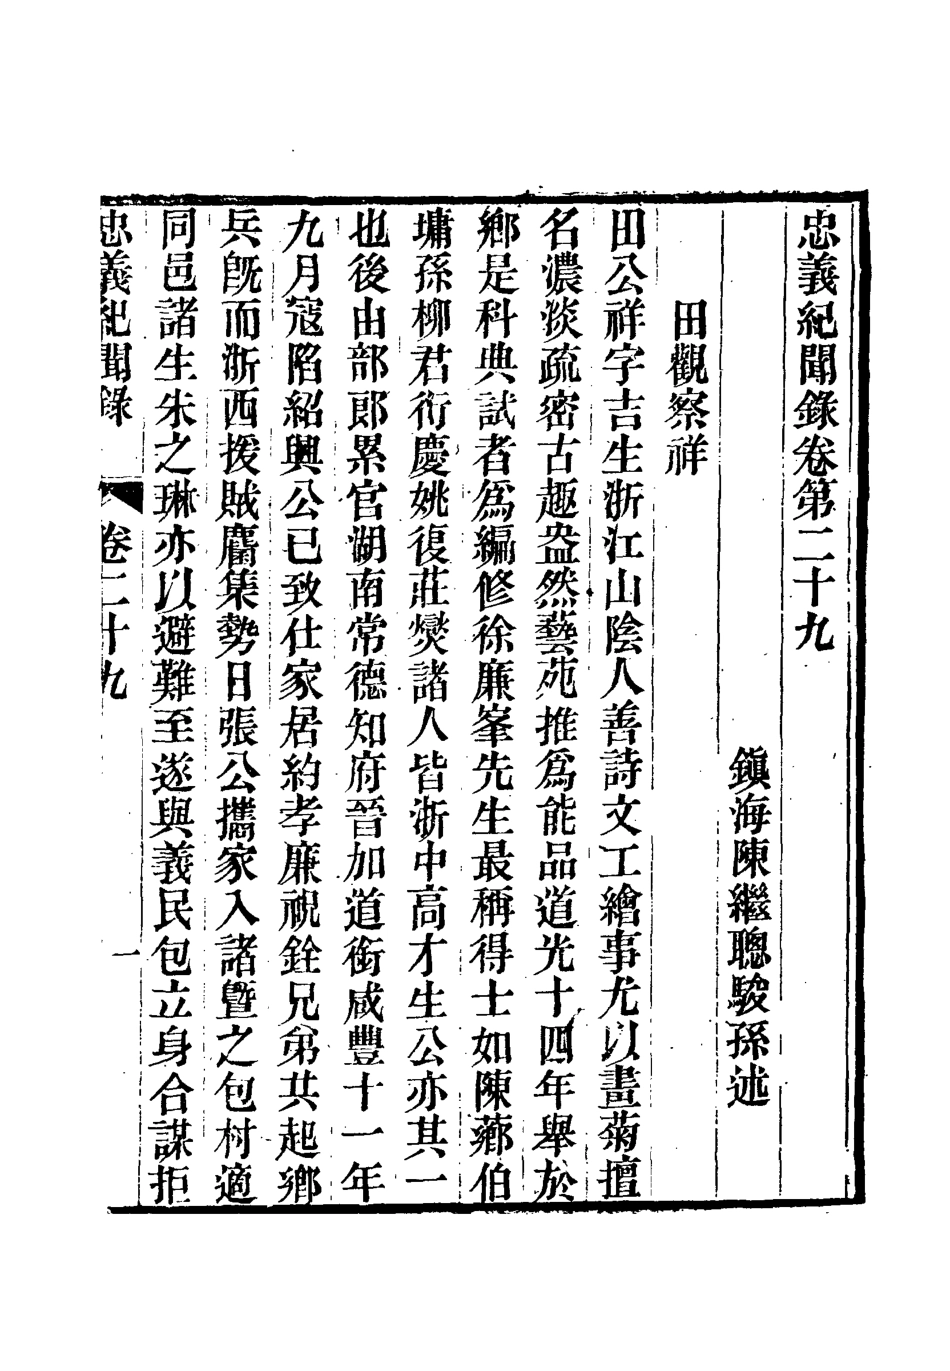 忠義紀聞錄卷第二十九
鎭海陳繼聰駿孫述
田觀察祥
田公祥字吉生浙江山陰人善詩文工繪事尤以畫菊擅
名濃淡疏密古趣盎然藝苑推爲能品道光十四年舉於
鄉是科典試者爲編修徐廉峯先生最稱得士如陳薌伯
墉孫柳君衍慶姚復莊燮諸人皆浙中高才生公亦其一
也後由部郎累官湖南常德知府晉加道銜咸豐十一年
九月寇陷紹興公已致仕家居約孝廉祝銓兄弟共起鄉
兵旣而浙西援賊麕集勢日張公攜家入諸曁之包村適
同邑諸生朱之琳亦以避難至遂與義民包立身合謀拒
忠義紀聞錄 卷二十九 一